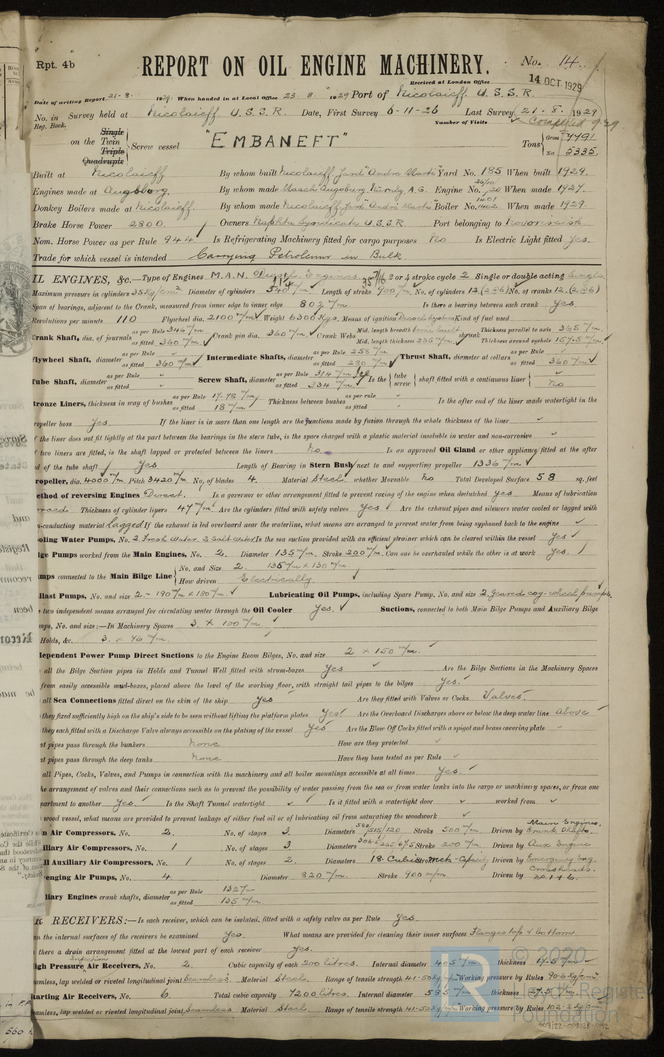 Rpt. 4b
REPORT ON OIL ENGINE MACHINERY.
No. 14.
Received at London Office
14 OCT 1929
Date of writing Report 21-8- 1929 When handed in at Local Office 23 8 1929 Port of Nicolaieff U.S.S.R.
No. in Survey held at Nicolaieff U.S.S.R. Date, First Survey 6-11-26 Last Survey 21-8-1929
Reg. Book. Number of Visits
on the Single Twin Triple Quadruple Screw vessel "EMBANEFT" Tons Gross 7791 Net 5335
Built at Nicolaieff By whom built Nicolaieff Yard "Andre Marti" Yard No. 185 When built 1929.
Engines made at Augsburg. By whom made Masch. Augsburg. A.G. Engine No. When made 1927.
Donkey Boilers made at Nicolaieff. By whom made Nicolaieff Yard "Andre Marti" Boiler No. When made 1929.
Brake Horse Power 2800. Owners Naphtha Syndicate U.S.S.R. Port belonging to
Nom. Horse Power as per Rule 944 Is Refrigerating Machinery fitted for cargo purposes No Is Electric Light fitted Yes.
Trade for which vessel is intended Carrying Petroleum in Bulk
IL ENGINES, &c.—Type of Engines M.A.N. 2 or 4 stroke cycle 2 Single or double acting Single
Maximum pressure in cylinders Diameter of cylinders Length of stroke 900 m/m. No. of cylinders 12 (2x6) No. of cranks 12. (2x6)
Span of bearings, adjacent to the Crank, measured from inner edge to inner edge 802 m/m Is there a bearing between each crank Yes.
Revolutions per minute 110 Flywheel dia. 2100 m/m Weight 6300 Kgs. Means of ignition Kind of fuel used
Crank Shaft, dia. of journals as per Rule 346 m/m as fitted 360 m/m Crank pin dia. 360 m/m. Crank Webs Mid. length breadth Mid. length thickness shrunk Thickness parallel to axis 365 m/m. Thickness around eyehole 157.5 m/m
lywheel Shaft, diameter as per Rule as fitted 360 m/m Intermediate Shafts, diameter as per Rule 255 m/m as fitted 280 m/m. Thrust Shaft, diameter at collars as per Rule as fitted 360 m/m
ube Shaft, diameter as per Rule as fitted Screw Shaft, diameter as per Rule 314 m/m as fitted 334 m/m. Is the tube screw shaft fitted with a continuous liner No
ronze Liners, thickness in way of bushes as per Rule as fitted 18 m/m Thickness between bushes as per rule as fitted Is the after end of the liner made watertight in the
ropeller boss Yes. If the liner is in more than one length are the junctions made by fusion through the whole thickness of the liner
the liner does not fit tightly at the part between the bearings in the stern tube, is the space charged with a plastic material insoluble in water and non-corrosive
two liners are fitted, is the shaft lapped or protected between the liners No. Is an approved Oil Gland or other appliance fitted at the after
d of the tube shaft Yes Length of Bearing in Stern Bush next to and supporting propeller 1336 m/m.
ropeller, dia. 4000 m/m Pitch 3420 m/m No. of blades 4. Material Steel whether Moveable No Total Developed Surface 58 sq. feet
ethod of reversing Engines Direct. Is a governor or other arrangement fitted to prevent racing of the engine when declutched Yes Means of lubrication
Forced. Thickness of cylinder liners 47 m/m. Are the cylinders fitted with safety valves Yes Are the exhaust pipes and silencers water cooled or lagged with
on-conducting material Lagged If the exhaust is led overboard near the waterline, what means are arranged to prevent water from being syphoned back to the engine
oling Water Pumps, No. 2 Fresh Water. 2 Salt Water Is the sea suction provided with an efficient strainer which can be cleared within the vessel Yes
lge Pumps worked from the Main Engines, No. 2. Diameter 135 m/m. Stroke 200 m/m. Can one be overhauled while the other is at work Yes.
mps connected to the Main Bilge Line No. and Size 2. How driven Electrically.
llast Pumps, No. and size 2 - Lubricating Oil Pumps, including Spare Pump, No. and size 2 Geared cog-wheel pumps
two independent means arranged for circulating water through the Oil Cooler Yes. Suctions, connected to both Main Bilge Pumps and Auxiliary Bilge
mps, No. and size:—In Machinery Spaces 3 x 100 m/m.
Holds, &c. 3 x
dependent Power Pump Direct Suctions to the Engine Room Bilges, No. and size 2 x 150 m/m.
all the Bilge Suction pipes in Holds and Tunnel Well fitted with strum-boxes Yes Are the Bilge Suctions in the Machinery Spaces
rom easily accessible mud-boxes, placed above the level of the working floor, with straight tail pipes to the bilges Yes.
all Sea Connections fitted direct on the skin of the ship Yes Are they fitted with Valves or Cocks Valves
they fixed sufficiently high on the ship's side to be seen without lifting the platform plates Yes Are the Overboard Discharges above or below the deep water line above
they each fitted with a Discharge Valve always accessible on the plating of the vessel Yes Are the Blow Off Cocks fitted with a spigot and brass covering plate
t pipes pass through the bunkers None How are they protected
t pipes pass through the deep tanks None Have they been tested as per Rule
all Pipes, Cocks, Valves, and Pumps in connection with the machinery and all boiler mountings accessible at all times Yes.
he arrangement of valves and their connections such as to prevent the possibility of water passing from the sea or from water tanks into the cargo or machinery spaces, or from one
partment to another Yes. Is the Shaft Tunnel watertight Is it fitted with a watertight door worked from
wood vessel, what means are provided to prevent leakage of either fuel oil or of lubricating oil from saturating the woodwork
n Air Compressors, No. 2. No. of stages 3. Diameters Stroke 500 m/m. Driven by Main Engines. Crank Shafts.
illiary Air Compressors, No. 1 No. of stages 3. Diameters Stroke 200 m/m. Driven by Aux. Engine
ll Auxiliary Air Compressors, No. 1 No. of stages 2. Diameters Stroke Driven by Emergency Eng.
enging Air Pumps, No. 4. Diameter 820 m/m. Stroke 900 m/m Driven by Crossheads.
liary Engines crank shafts, diameter as per Rule as fitted 135 m/m
R RECEIVERS:—Is each receiver, which can be isolated, fitted with a safety valve as per Rule Yes.
n the internal surfaces of the receivers be examined Yes. What means are provided for cleaning their inner surfaces Flanges top & bottom.
there a drain arrangement fitted at the lowest part of each receiver Yes.
igh Pressure Air Receivers, No. 2. Cubic capacity of each 200 litres. Internal diameter thickness
eamless, lap welded or riveted longitudinal joint Seamless. Material Steel. Range of tensile strength Working pressure by Rules
tarting Air Receivers, No. 6. Total cubic capacity 7200 litres. Internal diameter thickness
eamless, lap welded or riveted longitudinal joint Seamless Material Steel Range of tensile strength Working pressure by Rules
© 2020
Lloyd's Register
Foundation